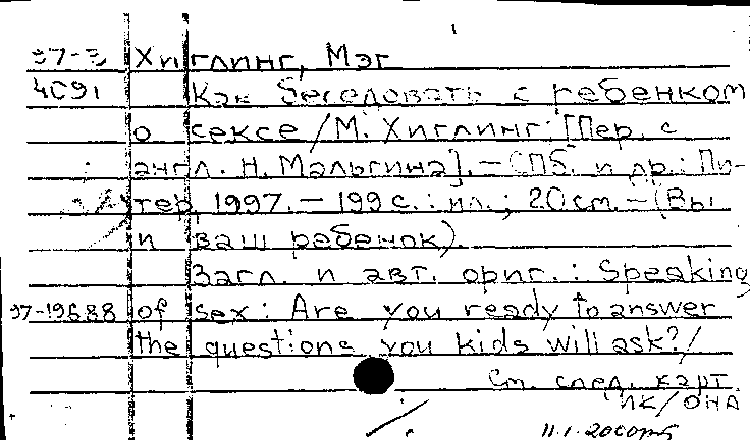 97-3 Хиглинг, Мэг
4091 Как беседовать с ребенком
о сексе / М. Хиглинг; [Пер. с
англ. Н. Мальгина]. — СПб. и др.: Пи-
тер, 1997. — 199 с. : ил. ; 20 см. — (Вы
и ваш ребенок).
Загл. и авт. ориг. : Speaking
97-19688 of sex: Are you ready to answer
the questions you kids will ask? /
См. след. карт.
ИК/ОНА